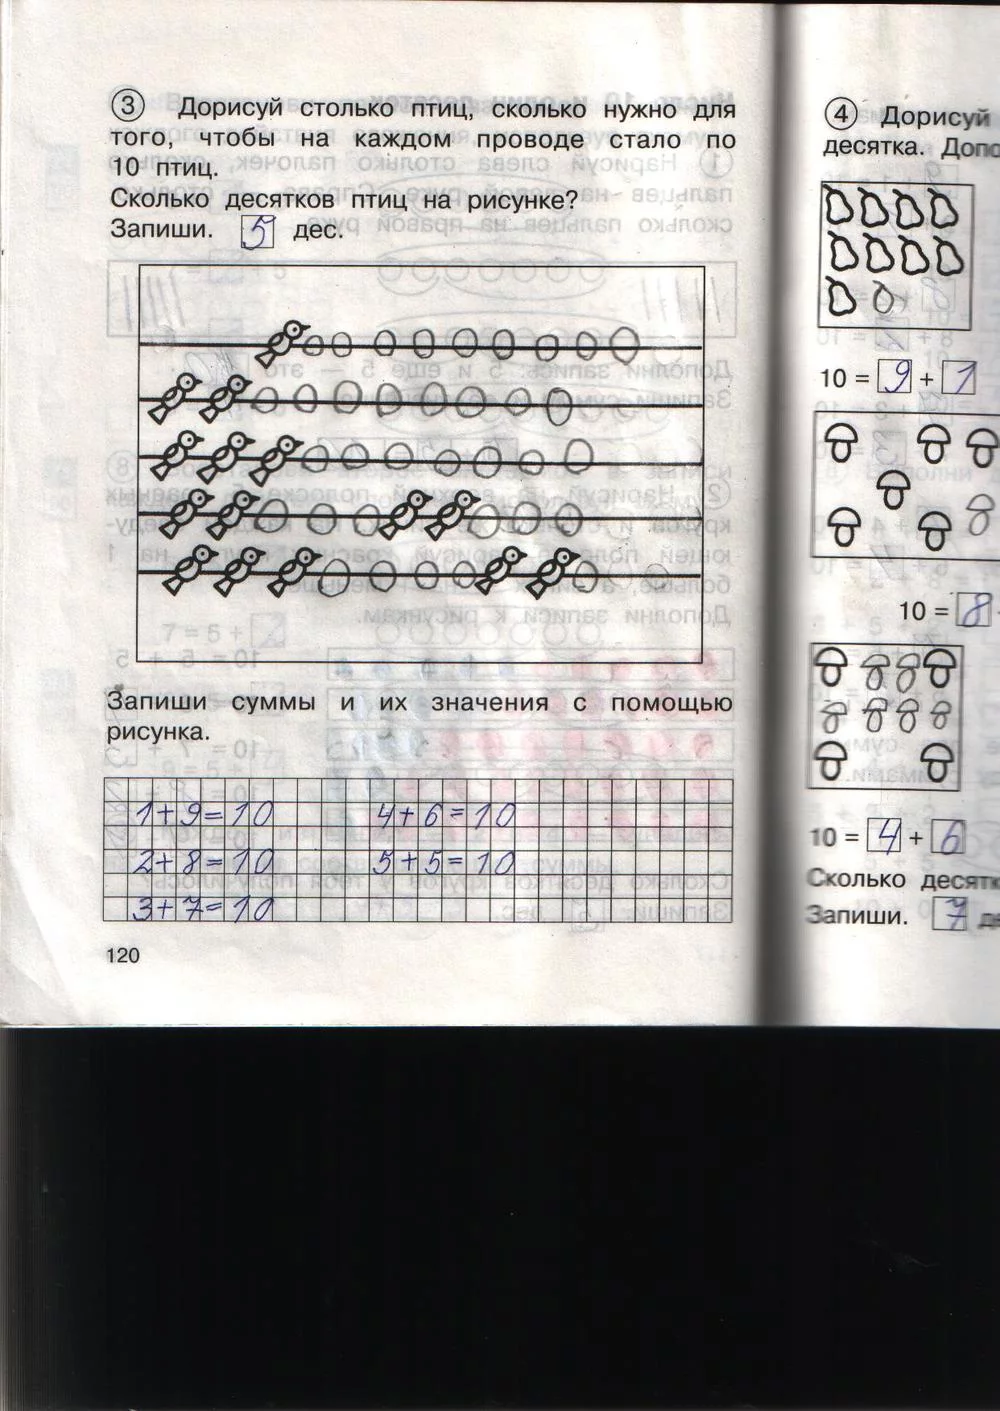 3 Дорисуй столько птиц, сколько нужно для
того, чтобы на каждом проводе стало по
10 птиц.
Сколько десятков птиц на рисунке?
Запиши. 5 дес.
Запиши суммы и их значения с помощью
рисунка.
1+9=10 4+6=10
2+8=10 5+5=10
3+7=10
120
4 Дорисуй
десятка. Допо
10 = 9 + 1
10 = 8
10 = 4 + 6
Сколько десятк
Запиши. 7 де